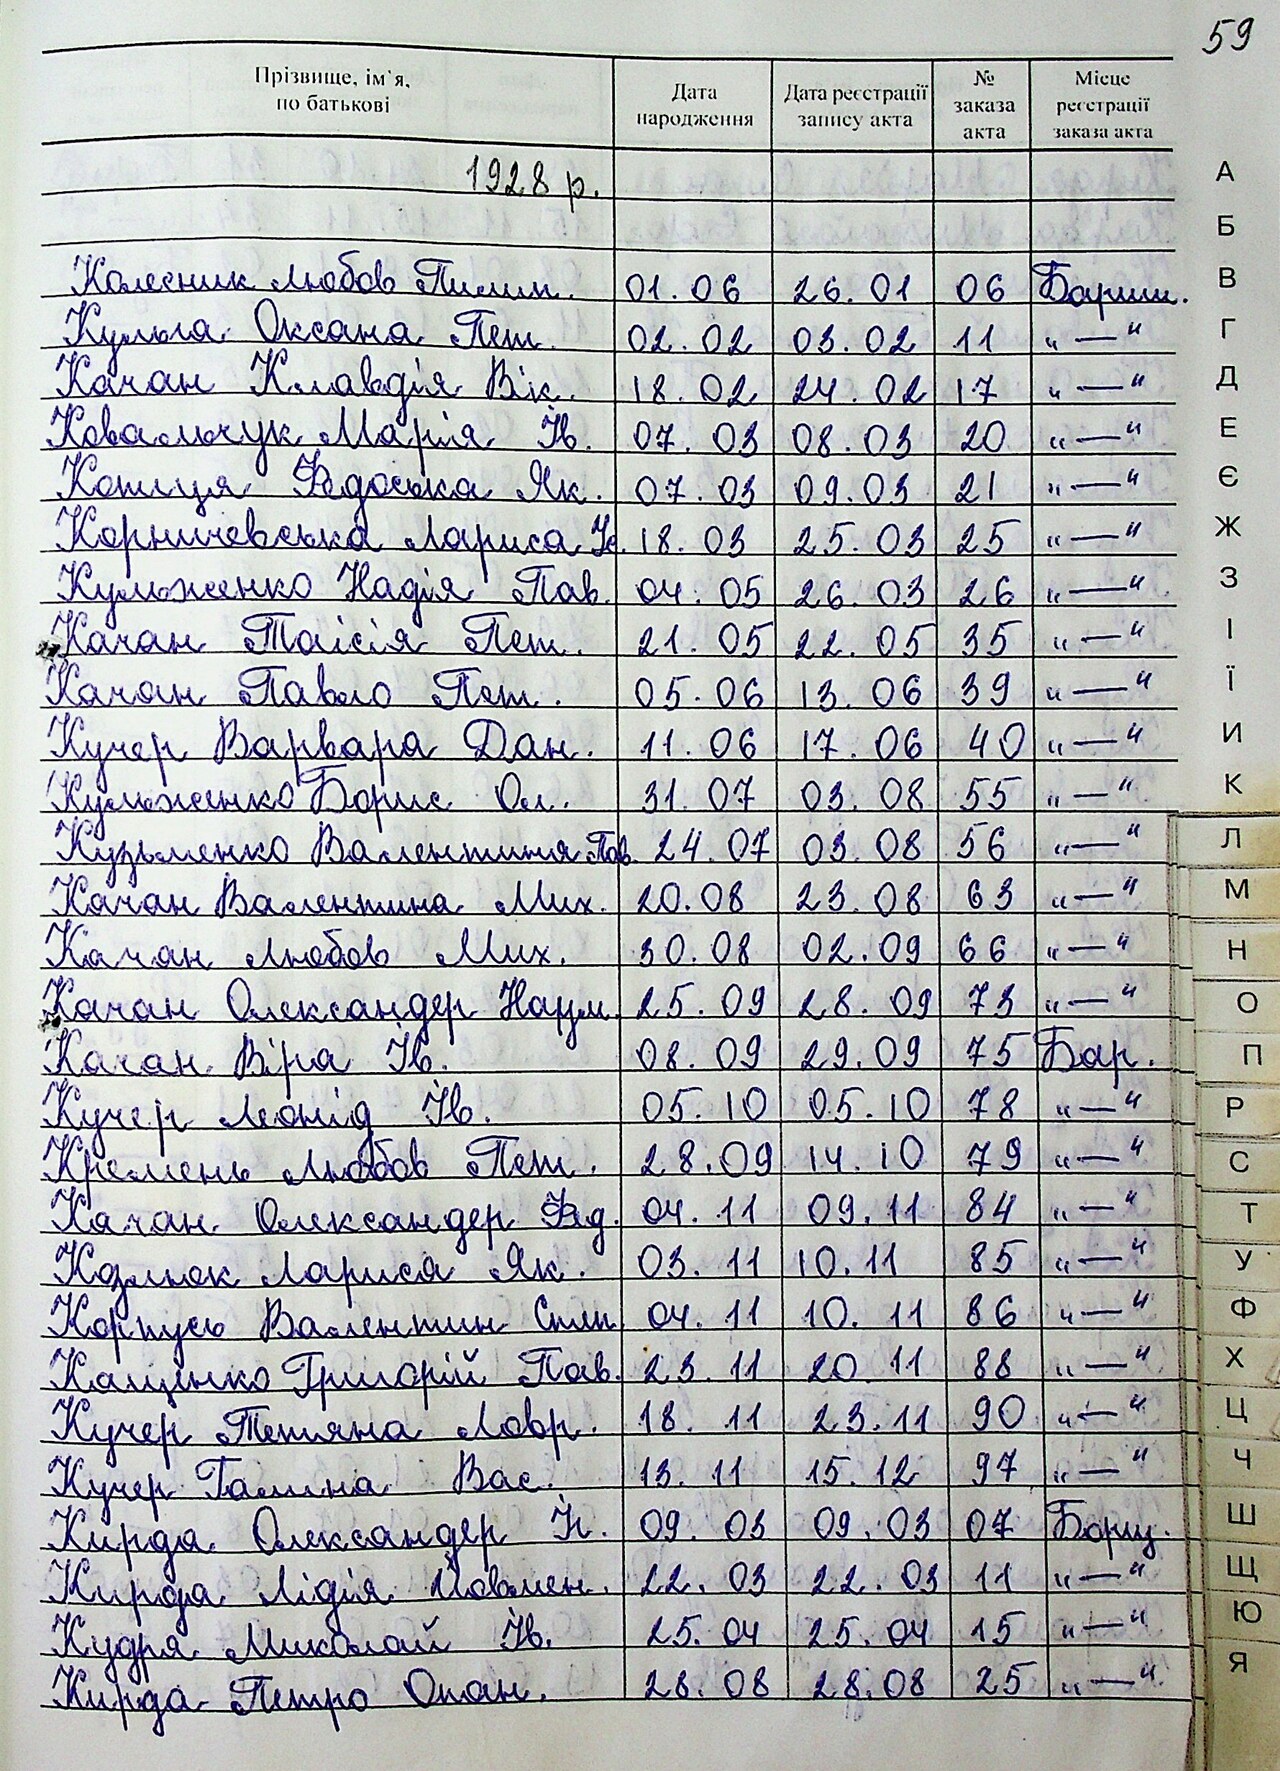 59
Прізвище, ім'я, по батькові Дата народження Дата реєстрації запису акта № заказа акта Місце реєстрації заказа акта
1928 р.
Колесник Любов Пилип. 01.06 26.01 06 Бариш.
Кульга Оксана Пет. 02.02 03.02 11 „—"
Качан Клавдія Вік. 18.02 24.02 17 „—"
Ковальчук Марія Ів. 07.03 08.03 20 „—"
Котиця Федоська Як. 07.03 09.03 21 „—"
Корничевська Лариса 18.03 25.03 25 „—"
Кульженко Надія Пав. 04.05 26.03 26 „—"
Качан Таісія Пет. 21.05 22.05 35 „—"
Качан Павло Пет. 05.06 13.06 39 „—"
Кучер Варвара Дан. 11.06 17.06 40 „—"
Кульженко Борис Ол. 31.07 03.08 55 „—"
Кузьменко Валентиня Пав. 24.07 03.08 56 „—"
Качан Валентина Мих. 20.08 23.08 63 „—"
Качан Любов Мих. 30.08 02.09 66 „—"
Качан Олександер Наум. 25.09 28.09 73 „—"
Качан Віра Ів. 08.09 29.09 75 Бар.
Кучер Леонід Ів. 05.10 05.10 78 „—"
Кремень Любов Пет. 28.09 14.10 79 „—"
Качан Олександер Фед. 04.11 09.11 84 „—"
Козлюк Лариса Як. 03.11 10.11 85 „—"
Корпусь Валентин Степ. 04.11 10.11 86 „—"
Кащенко Григорій Пав. 23.11 20.11 88 „—"
Кучер Тетяна Лавр. 18.11 23.11 90 „—"
Кучер Галина Вас. 13.11 15.12 97 „—"
Кирда Олександер 09.03 09.03 07 Борщ.
Кирда Лідія 22.03 22.03 11 „—"
Кудря Миколай Ів. 25.04 25.04 15 „—"
Кирда Петро Опан. 28.08 28.08 25 „—"
А
Б
В
Г
Д
Е
Є
Ж
З
І
Ї
И
К
Л
М
Н
О
П
Р
С
Т
У
Ф
Х
Ц
Ч
Ш
Щ
Ю
Я